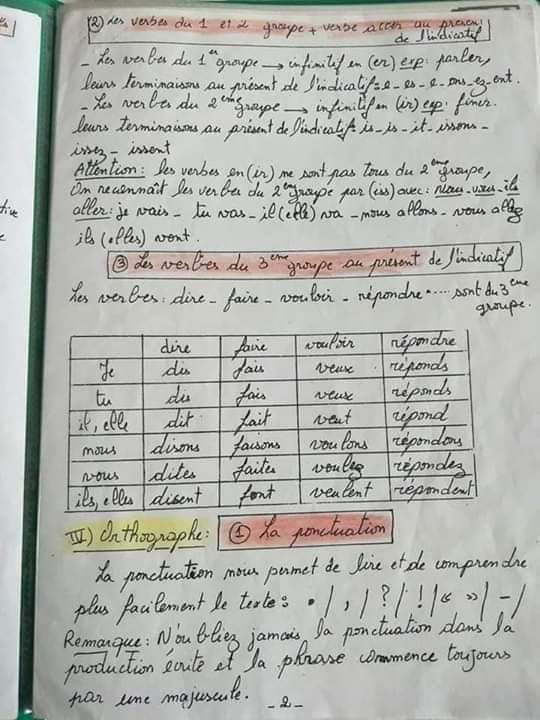 ② Les verbes du 1 et 2 groupe + verbe aller au présent
de l'indicatif
- Les verbes du 1er groupe → infinitif en (er) exp: parler,
leurs terminaisons au présent de l'indicatif = e - es - e - ons - ez - ent.
- Les verbes du 2ème groupe → infinitif en (ir) exp: finir.
leurs terminaisons au présent de l'indicatif = is - is - it - issons -
issez - issent
Attention: les verbes en (ir) ne sont pas tous du 2ème groupe,
On reconnaît les verbes du 2ème groupe par (iss) avec: nous - vous - ils
aller: je vais - tu vas - il (elle) va - nous allons - vous allez
ils (elles) vont.
③ Les verbes du 3ème groupe au présent de l'indicatif
Les verbes: dire - faire - vouloir - répondre .... sont du 3ème
groupe.
dire faire vouloir répondre
Je dis fais veux réponds
tu dis fais veux réponds
il, elle dit fait veut répond
nous disons faisons voulons répondons
vous dites faites voulez répondez
ils, elles disent font veulent répondent
IV) Orthographe: ① La ponctuation
La ponctuation nous permet de lire et de comprendre
plus facilement le texte: . / , / ? / ! / « » / - /
Remarque: N'oubliez jamais, la ponctuation dans la
production écrite et la phrase commence toujours
par une majuscule.
- 2 -